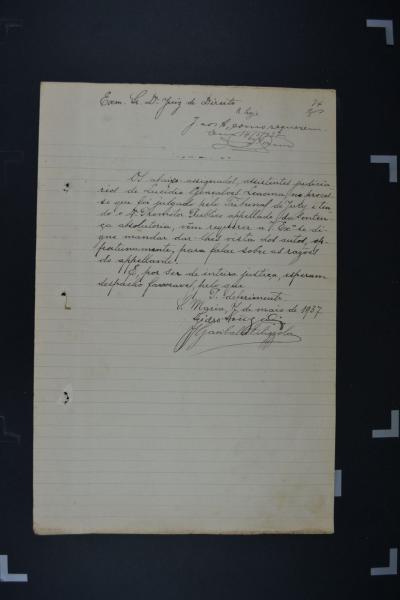 Exm. Sr. Dr. Juiz de Direito
J. aos A, como requerem
Os abaixo assignados, assistentes judicia-
rios de Lucidio Gonçalves Lencina, no proces-
so que foi julgado pelo Tribunal do Jury e ten-
do o Dr. Promotor Publico appellado da senten-
ça absolutoria, vêm requerer a V. Exª. se di-
gne mandar dar-lhes vista dos autos, op-
portunamente, para falar sobre as razões
do appellante.
E, por ser de inteira justiça, esperam
despacho favoravel, pelo que
P. deferimento.
S. Maria, 7 de maio de 1937.